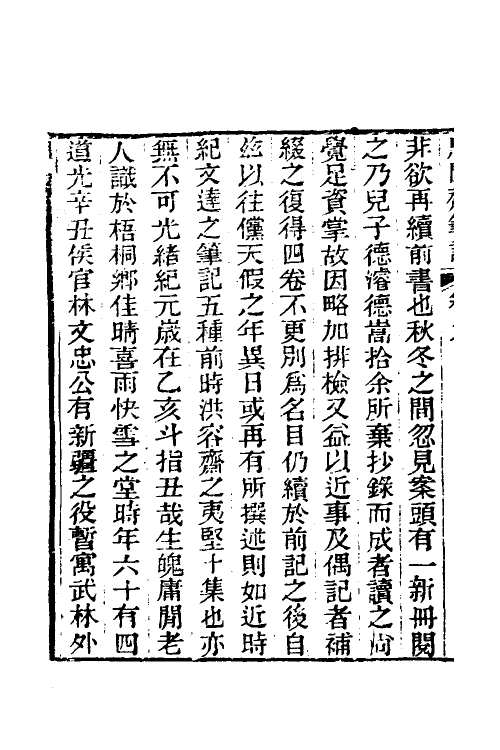 非欲再續前書也秋冬之間忽見案頭有一新冊閱
之乃兒子德濬德嵩拾余所棄抄錄而成者讀之尙
覺足資掌故因略加排檢又益以近事及偶記者補
綴之復得四卷不更別為名目仍續於前記之後自
玆以往儻天假之年異日或再有所撰述則如近時
紀文達之筆記五種前時洪容齋之夷堅十集也亦
無不可光緒紀元歲在乙亥斗指丑哉生魄庸閒老
人識於梧桐鄉佳晴喜雨快雪之堂時年六十有四
道光辛丑侯官林文忠公有新疆之役暫寓武林外